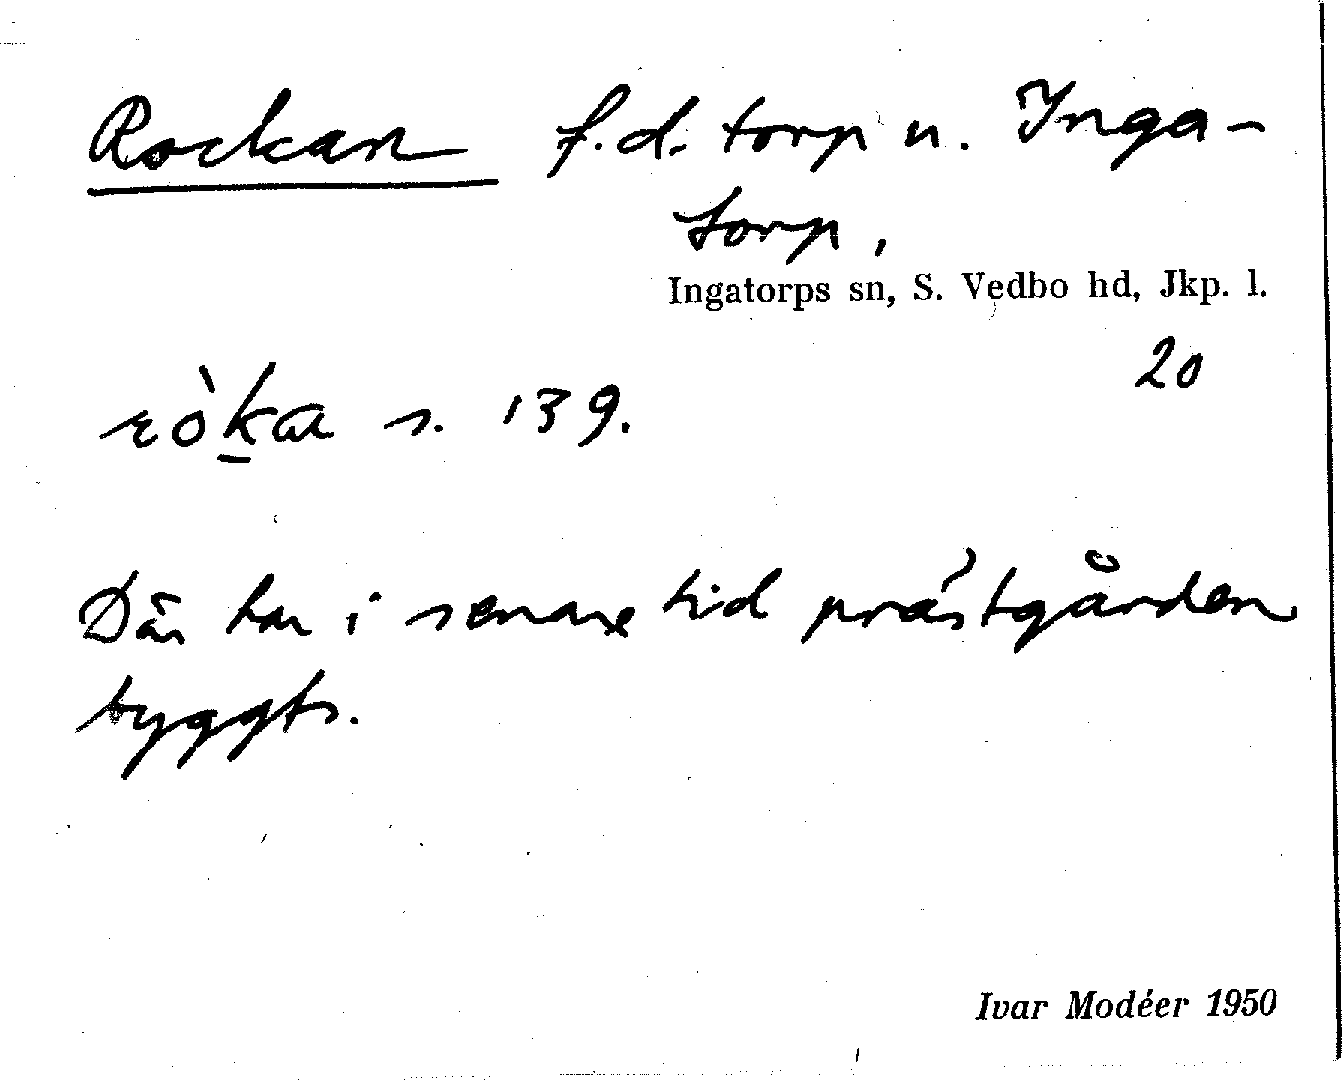 Rockan f.d. torp u. Inga-
torp,
Ingatorps sn, S. Vedbo hd, Jkp. l.
20
ròk̲a s. 139.
Där har i senare tid prästgården
byggts.
Ivar Modéer 1950